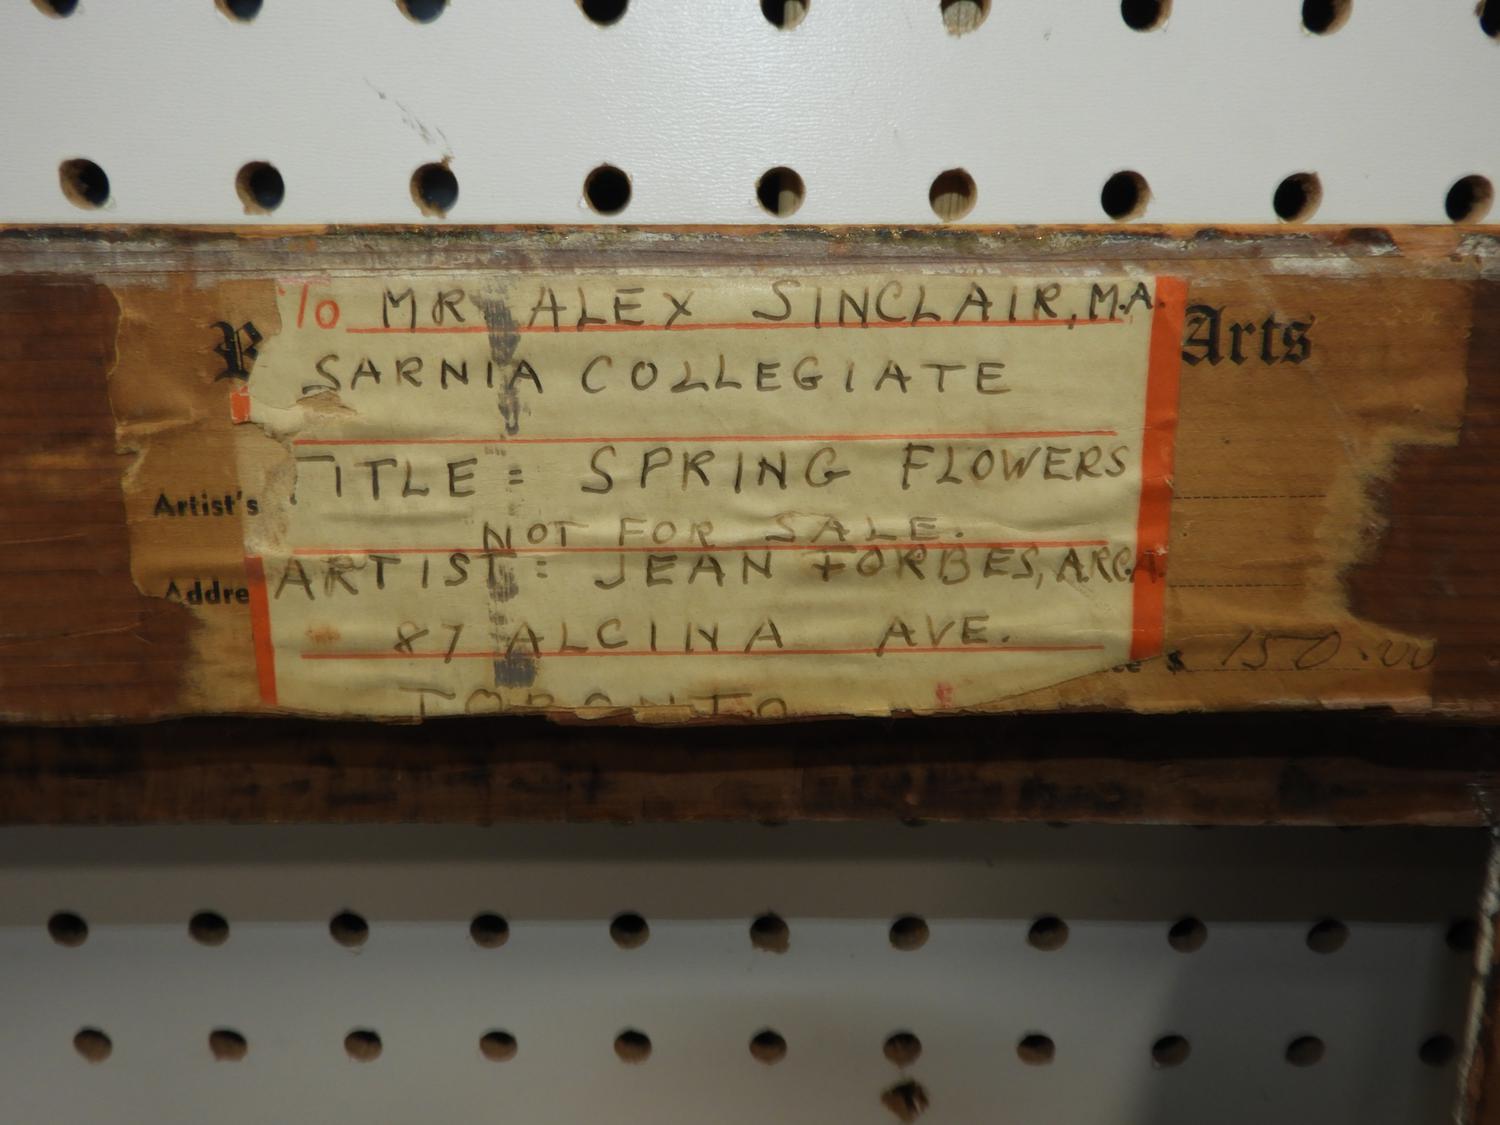 To MR ALEX SINCLAIR, M.A.
Arts
SARNIA COLLEGIATE
TITLE: SPRING FLOWERS
Artist's
NOT FOR SALE.
ARTIST: JEAN FORBES, A.R.C.A.
Addre
87 ALCINA AVE.
$ 150.00
TORONTO